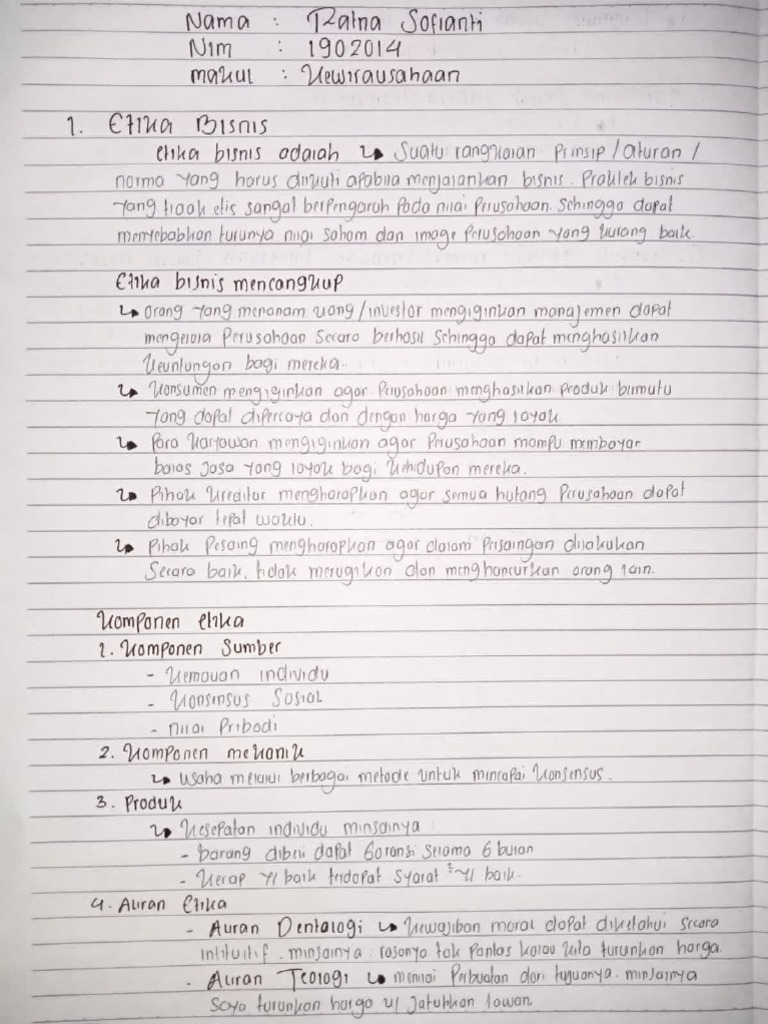 Nama : Ratna Sofianti
Nim : 1902014
makul : Kewirausahaan
1. Etika Bisnis
etika bisnis adalah ↳ Suatu rangkaian Prinsip / aturan /
norma yang harus diikuti apabila menjalankan bisnis. Praktek bisnis
yang tidak etis sangat berpengaruh Pada nilai Perusahaan. Sehingga dapat
menyebabkan turunya nilai saham dan image Perusahaan yang kurang baik.
Etika bisnis mencangkup
↳ orang yang menanam uang / investor mengiginkan manajemen dapat
mengelola Perusahaan Secara berhasil Sehingga dapat menghasilkan
keuntungan bagi mereka.
↳ Konsumen mengiginkan agar Perusahaan menghasilkan Produk bermutu
yang dapat dipercaya dan dengan harga yang layak.
↳ Para karyawan mengiginkan agar Perusahaan mampu membayar
balas Jasa yang layak bagi kehidupan mereka.
↳ Pihak kreditur mengharapkan agar semua hutang Perusahaan dapat
dibayar tepat waktu.
↳ Pihak Pesaing mengharapkan agar dalam Persaingan dilakukan
Secara baik, tidak merugikan dan menghancurkan orang lain.
Komponen etika
1. Komponen Sumber
- Kemauan individu
- Konsensus Sosial
- nilai Pribadi
2. Komponen mekanik
↳ usaha melalui berbagai metode untuk mencapai Konsensus.
3. Produk
↳ Kesepatan individu minsalnya :
- barang dibeli dapat Garansi Selama 6 bulan
- Kecap yg baik terdapat Syarat² yg baik.
4. Aliran Etika
- Aliran Dentologi ↳ Kewajiban moral dapat diketahui secara
intituitif. minsalnya : rasanya tak Pantas kalau kita turunkan harga.
- Aliran Teologi ↳ menilai Perbuatan dari tujuanya. minsalnya
Saya turunkan harga u/ Jatuhkan lawan.